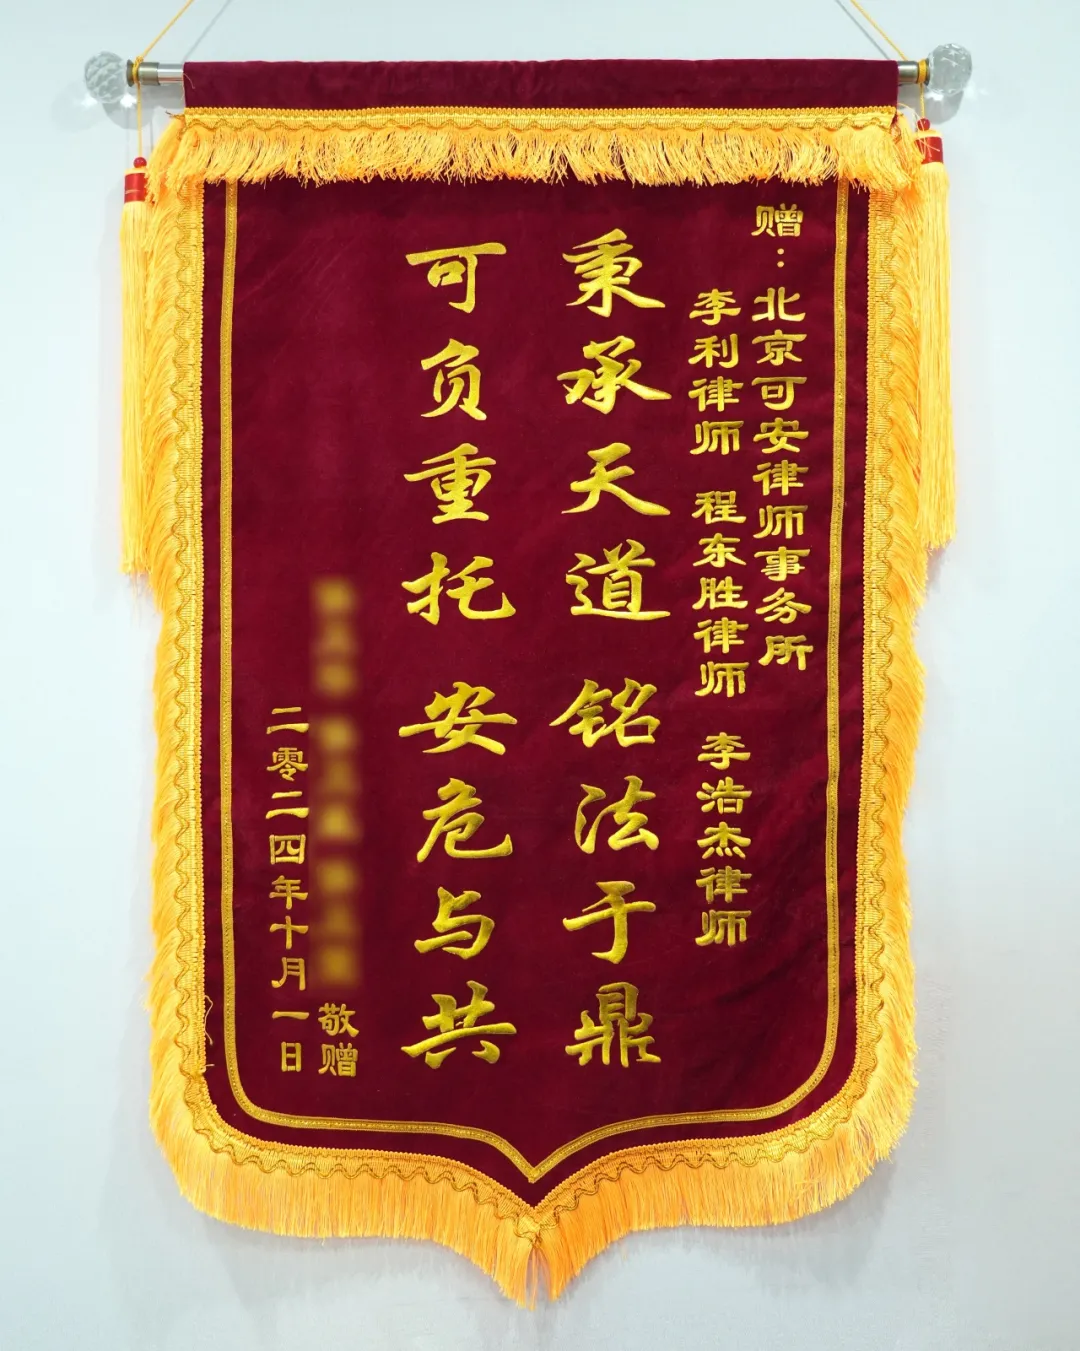 赠：北京可安律师事务所
李利律师 程东胜律师 李浩杰律师
秉承天道 铭法于鼎
可负重托 安危与共
敬赠
二零二四年十月一日